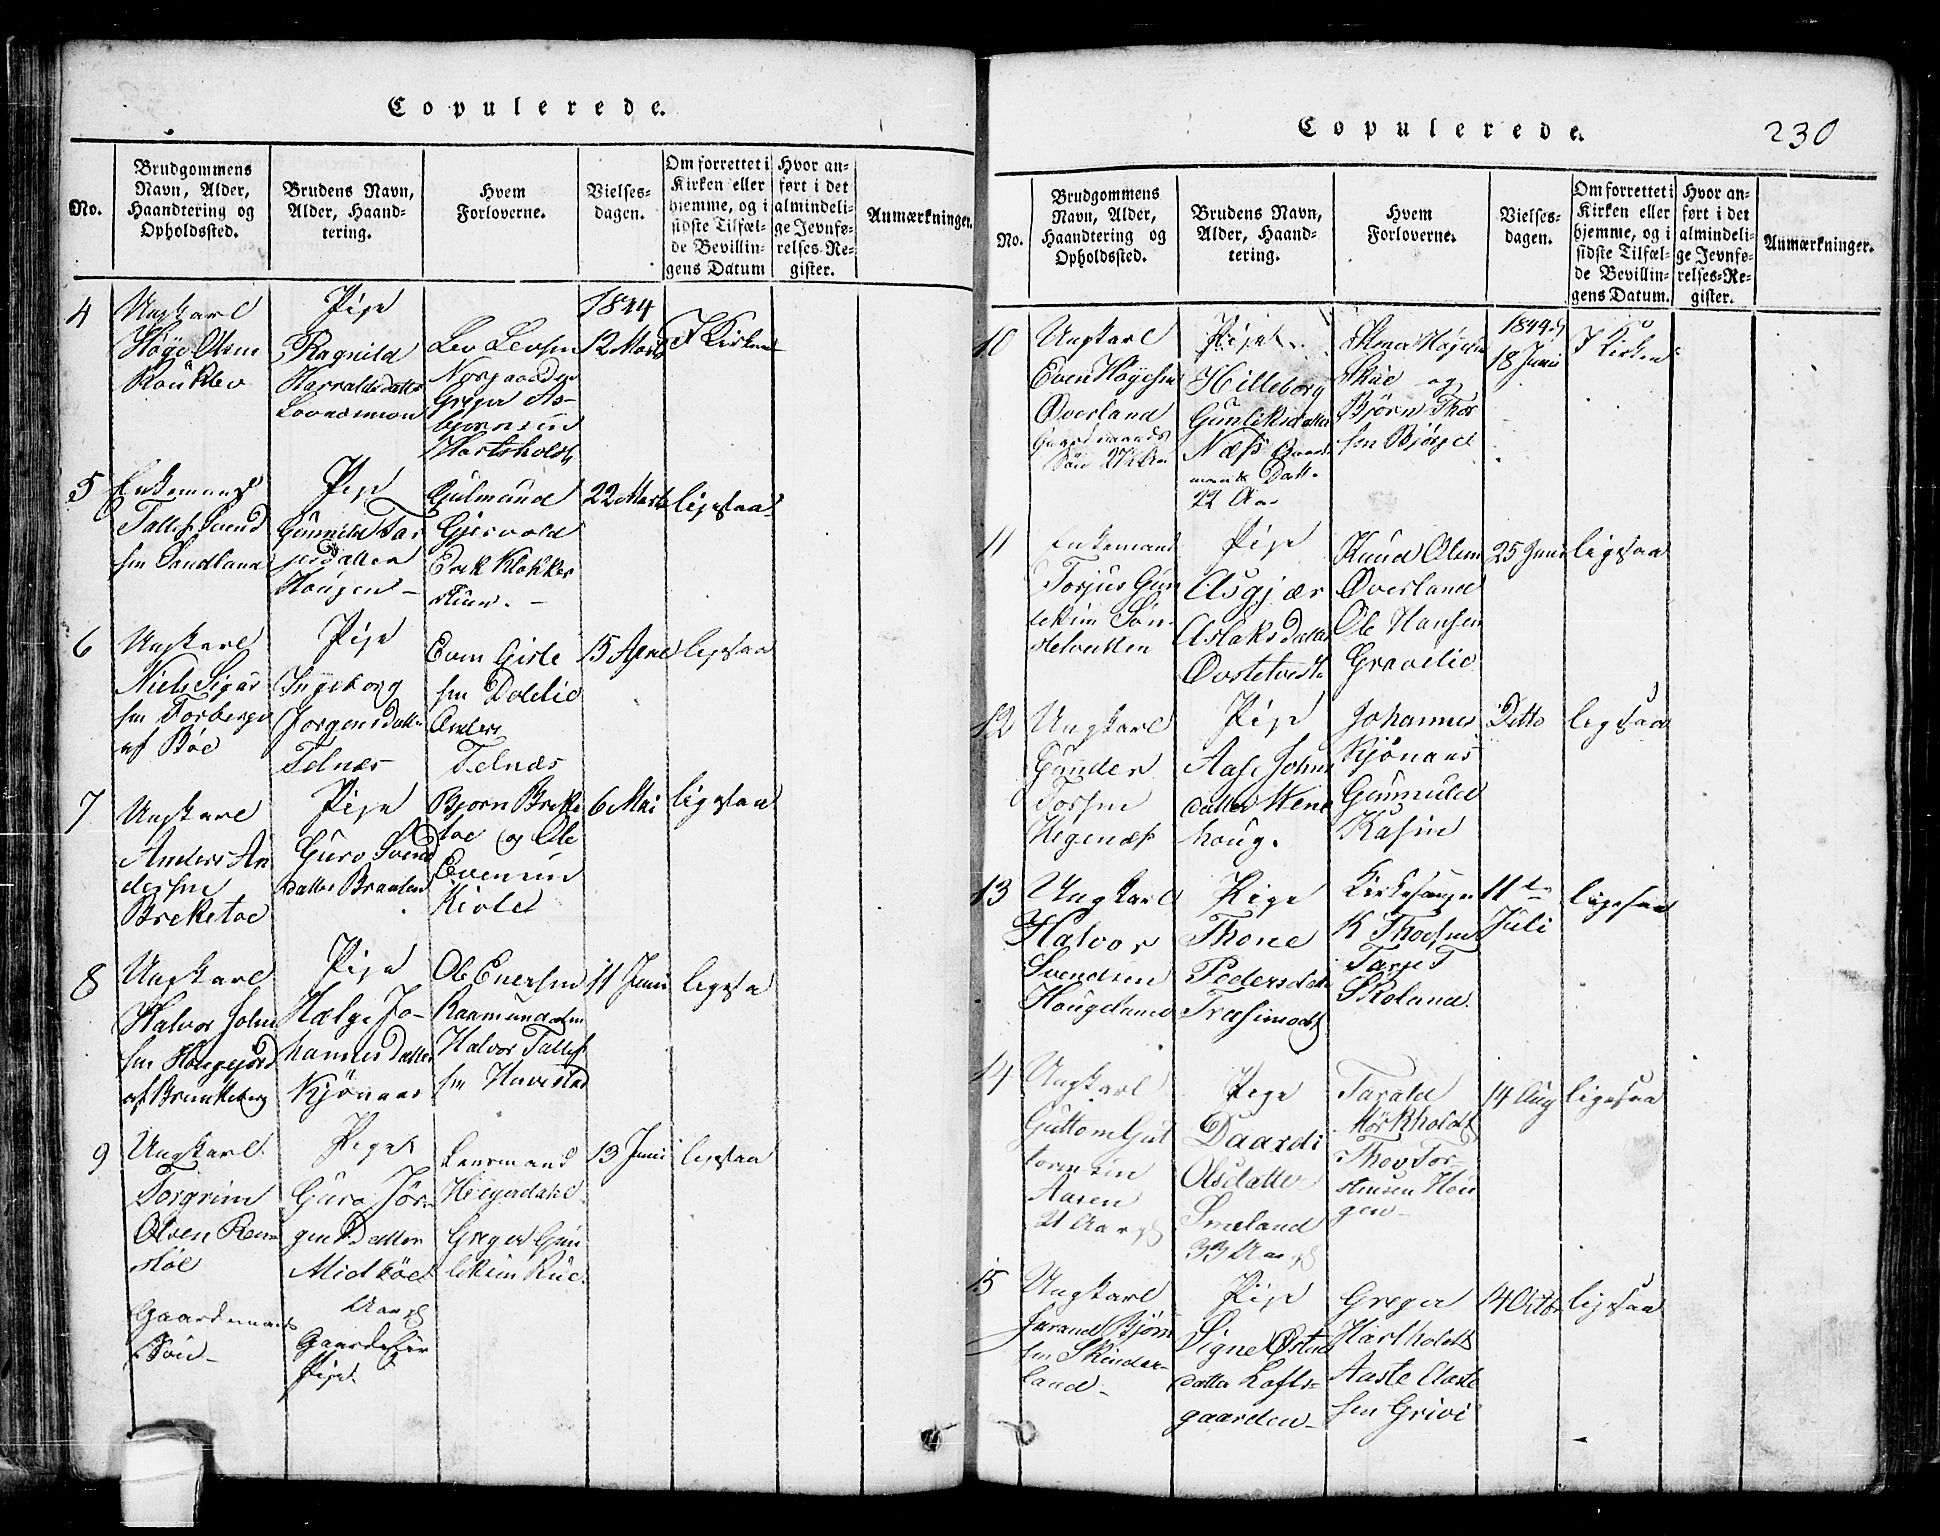 Copulerede.
No.
Brudgommens
Navn, Alder,
Haandtering og
Opholdssted.
Brudens Navn,
Alder, Haand-
tering.
Hvem
Forloverne.
Vielses-
dagen.
Om forrettet i
Kirken eller
hjemme, og i
sidste Tilfæl-
de Bevillin-
gens Datum
Hvor an-
ført i det
almindeli-
ge Jevnfø-
relses-Re-
gister.
Anmærkninger.
4
Ungkarl
Høye Olsen
Rouklev
Pige
Ragnild
Harraldsdatter
Lev Levsen
Norgaarden
Greger As-
bjørnsen
Hartsholdt
1844
12 Marts
I Kirken
5
Enkemand
Tallef Svend
sen Sandland
Pige
Gunnild Tar
jesdatter
Hougen
Gulmund
Gjervold
Erik Klokker
22 Marts
ligesaa
6
Ungkarl
Niels Sigur
sen Torberge
af Bøe
Pige
Ingeborg
Jørgensdatter
Telnæs
Even Gisle
sen Dolelie
Anders
Telnæs
15 April
ligesaa
7
Ungkarl
Anders An
dersen
Breketoe
Pige
Guro Svend
datter Braaten
Bjorn Breke
toe og Ole
Evensen
Kiole
6 Mai
ligesaa
8
Ungkarl
Halvor John
sen Hougejord
af Brunkeberg
Pige
Hælge Jo-
hannesdatter
Kjønaas
Ole Evensen
Raamundalen
Halvor Tallef
sen Havrestad
11 Juni
ligesaa
9
Ungkarl
Torgrim
Olsen Ren-
støe
Gaardemands
Søn
Pige
Guro Jør
gensdatter
Midbøe
Aar
Gaardeier
Pige
Lensmand
Heigerdahl
Greger Gun
leksen Rue
13 Juni
ligesaa
Copulerede.
230
No.
Brudgommens
Navn, Alder,
Haandtering og
Opholdssted.
Brudens Navn,
Alder, Haand-
tering.
Hvem
Forloverne.
Vielses-
dagen.
Om forrettet i
Kirken eller
hjemme, og i
sidste Tilfæl-
de Bevillin-
gens Datum.
Hvor an-
ført i det
almindeli-
ge Jevnfø-
relses-Re-
gister.
Anmærkninger.
10
Ungkarl
Even Høyesen
Øverland
Gaardmands
Søn
Pige
Hilleborg
Gunleksdatter
Næss Gaard
mands Datt.
22 Aar
Høyesen
Rue og
Bjørn Thor
sen Bjørge
1844
18 Juni
I Kirken
11
Enkemand
Torjus Gun
leksen Søn-
stetvedten
Pige
Asgjær
Aslaksdatter
Øvstetvedt
Knud Olsen
Øverland
Ole Hansen
Gravelie
25 Juni
ligesaa
12
Ungkarl
Gunder
Torsen
Hegenæs
Pige
Aase Johns
datter Wene
houg.
Johannes
Kjønaas
Gunnuld
Kasin
Ditto
ligesaa
13
Ungkarl
Halvor
Svendsen
Hougelund
Pige
Thone
Pedersdatter
Træsimodt
Kirkesanger
K Thorsen
Tarje T
Skoland
11te
Juli
ligesaa
14
Ungkarl
Guttorm Gut
tormsen
Aasen
21 Aar
Pige
Daardi
Olsdatter
Smeland
33 Aar
Tarald
Mørkholdt
Thov Tor-
stensen Hou
gen
14 Aug
ligesaa
15
Ungkarl
Jørand Bjørn
sen Skinder-
land
Pige
Signe Østens
datter Lofts-
gaarden
Greger
Hartholdt
Aaste Aaste
sen Grivi
14 Octbr
ligesaa